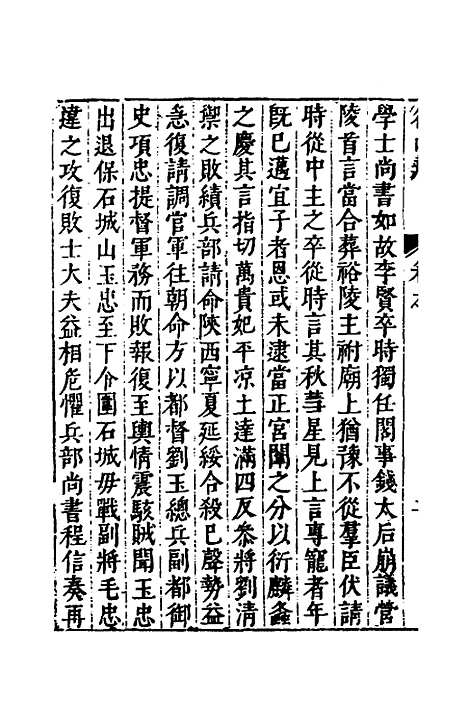 學士尚書如故李賢卒時獨任閣事錢太后崩議營
陵首言當合葬裕陵主祔廟上猶豫不從羣臣伏請
時從中主之卒從時言其秋彗星見上言專寵者年
既已邁宜子者恩或未逮當正宮闈之分以衍麟螽
之慶其言指切萬貴妃平凉土達滿四反叅將劉清
禦之敗績兵部請命陝西寧夏延綏合殺已聲勢益
急復請調官軍往朝命方以都督劉玉總兵副都御
史項忠提督軍務而敗報復至輿情震駭賊聞玉忠
出退保石城山玉忠至下令圍石城毋戰副將毛忠
違之攻復敗士大夫益相危懼兵部尚書程信奏再